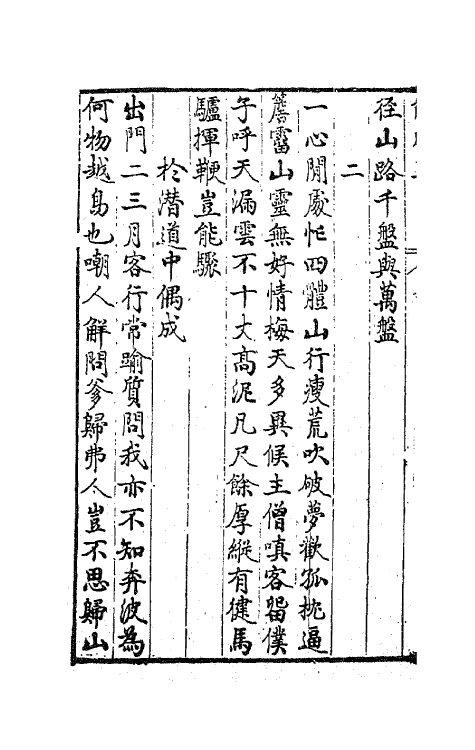 径山路千盤與萬盤
二
一心閒處忙四體山行瘦荒吹破夢歡孤枕逼
簷霤山靈無好情梅天多異候主僧嗔客留僕
子呼天漏雲不十丈髙泥凡尺餘厚縱有健馬
驢揮鞭豈能驟
於潛道中偶成
出門二三月客行常踰質問我亦不知奔波為
何物越鳥也嘲人解問爹歸弗人豈不思歸山